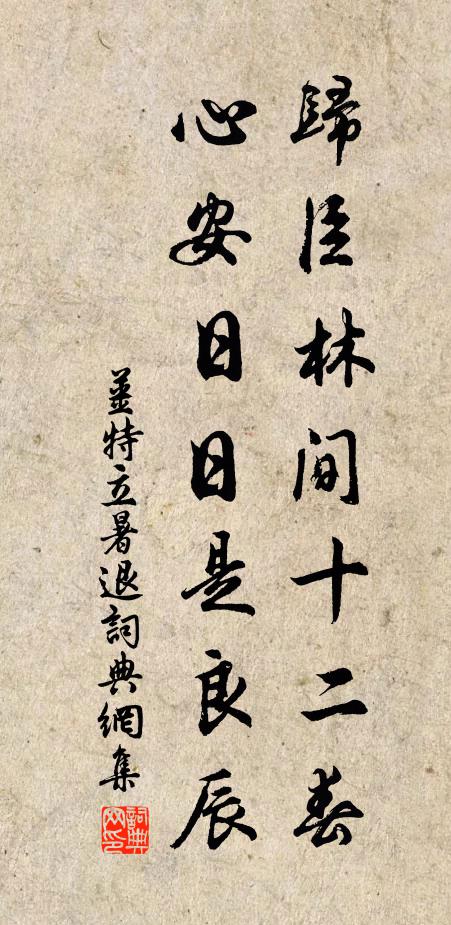 歸臥林間十二春
心安日日是良辰
薑特立暑退詞典網集
詞典网印